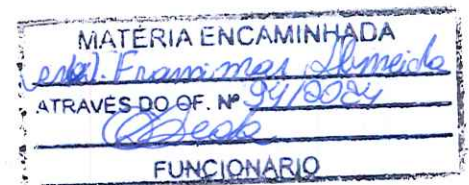 MATÉRIA ENCAMINHADA
Almeida
ATRAVÉS DO OF. Nº 94/2024
FUNCIONARIO